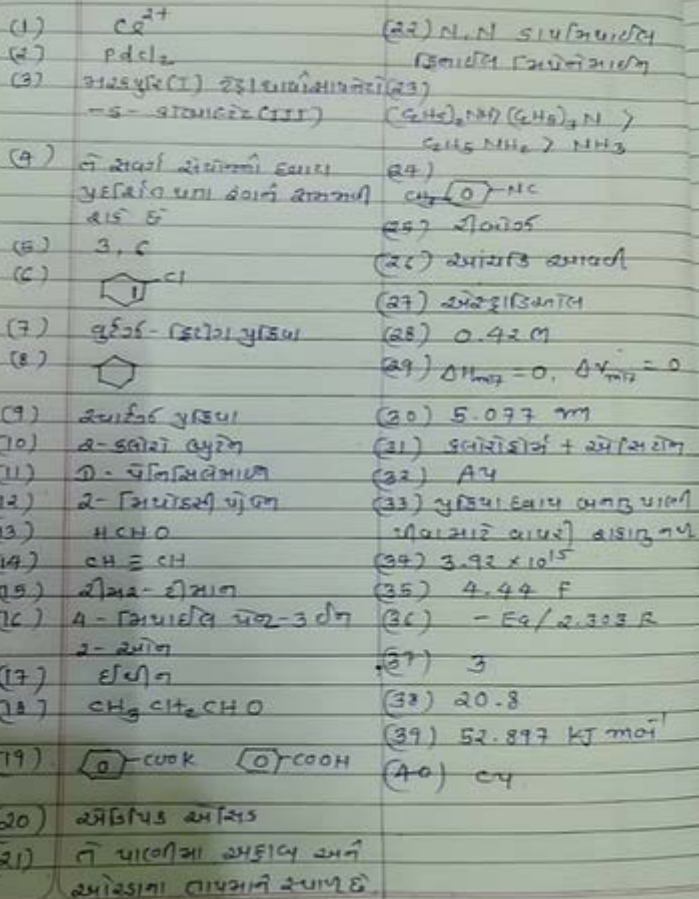 (1) Ce²⁺
(2) Pdcl₂
(3) મરક્યુરિ(I) ટેટ્રાથાયોસાયનેટો
-S- કોબાલ્ટેટ(III)
(4) તે સવર્ગ સંયોજનો દ્વારા
પ્રદર્શિત થતા રંગને સમજાવી
શકે છે
(5) 3, 6
(6) Cl
(7) વુર્ટઝ - ફિટીગ પ્રક્રિયા
(8)
(9) સ્વાર્ટઝ પ્રક્રિયા
10) 2-ક્લોરો બ્યુટેન
11) D - પેનિસિલેમાઈન
12) 2- મિથોક્સી પ્રોપેન
13) HCHO
14) CH ≡ CH
15) રીમર - ટીમાન
16) 4 - મિથાઈલ પેન્ટ-3 ઈન
2-ઓન
(17) ઈથીન
18) CH₃ CH₂ CHO
19) COOK COOH
20) એડિપિક એસિડ
21) તે પાણીમા અદ્રાવ્ય અને
ઓરડાના તાપમાને સ્થાયી છે.
(22) N,N ડાયમિથાઈલ
ફિનાઈલ મિથેનેમાઈન
(23)
(C₂H₅)₂NH > (C₂H₅)₃N >
C₂H₅ NH₂ > NH₃
24)
CH₃ NC
25) રીબોઝ
(26) આંચકી આવવી
(27) એસ્ટ્રાડિઓલ
(28) 0.42 M
(29) ΔHmix = 0, ΔVmix = 0
(30) 5.077 m
(31) ક્લોરોફોર્મ + એસિટોન
(32) Au
(33) પ્રક્રિયા દ્વારા બનતુ પાણી
પીવા માટે વાપરી શકાતુ નથી
(34) 3.92 × 10¹⁵
(35) 4.44 F
(36) - Ea / 2.303 R
(37) 3
(38) 20.8
(39) 52.897 KJ mol⁻¹
(40) Cu